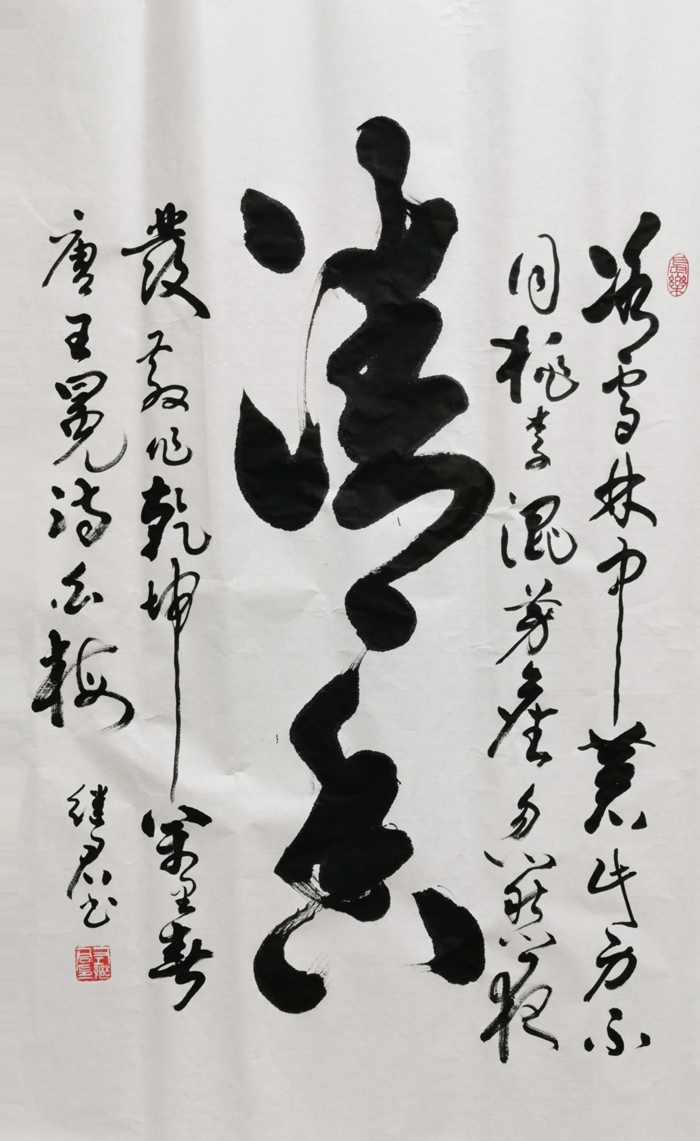 冰雪林中著此身不
同桃李混芳塵忽然一夜
清香
發散作乾坤萬里春
唐王冕诗白梅
继君书
長樂